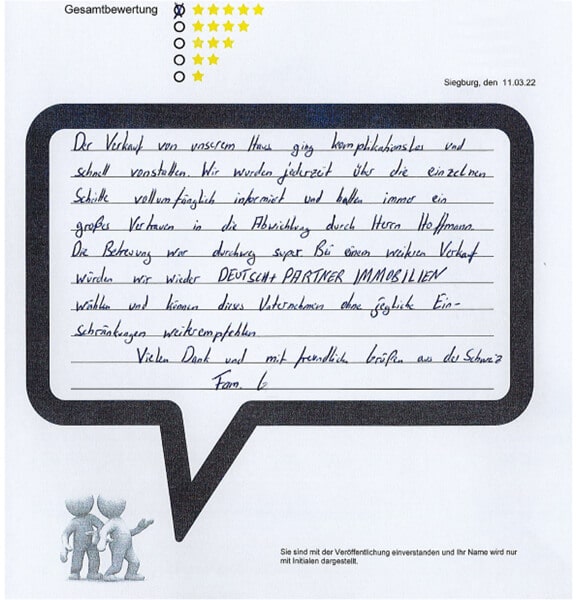 Gesamtbewertung
Siegburg, den 11.03.22
Der Verkauf von unserem Haus ging komplikationslos und
schnell vonstatten. Wir wurden jederzeit über die einzelnen
Schritte vollumfänglich informiert und hatten immer ein
großes Vertrauen in die Abwicklung durch Herrn Hoffmann.
Die Betreuung war durchweg super. Bei einem weiteren Verkauf
würden wir wieder DEUTSCH + PARTNER IMMOBILIEN
wählen und können dieses Unternehmen ohne jegliche Ein-
schränkungen weiterempfehlen.
Vielen Dank und mit freundlichen Grüßen aus der Schweiz
Fam.
Sie sind mit der Veröffentlichung einverstanden und Ihr Name wird nur
mit Initialen dargestellt.